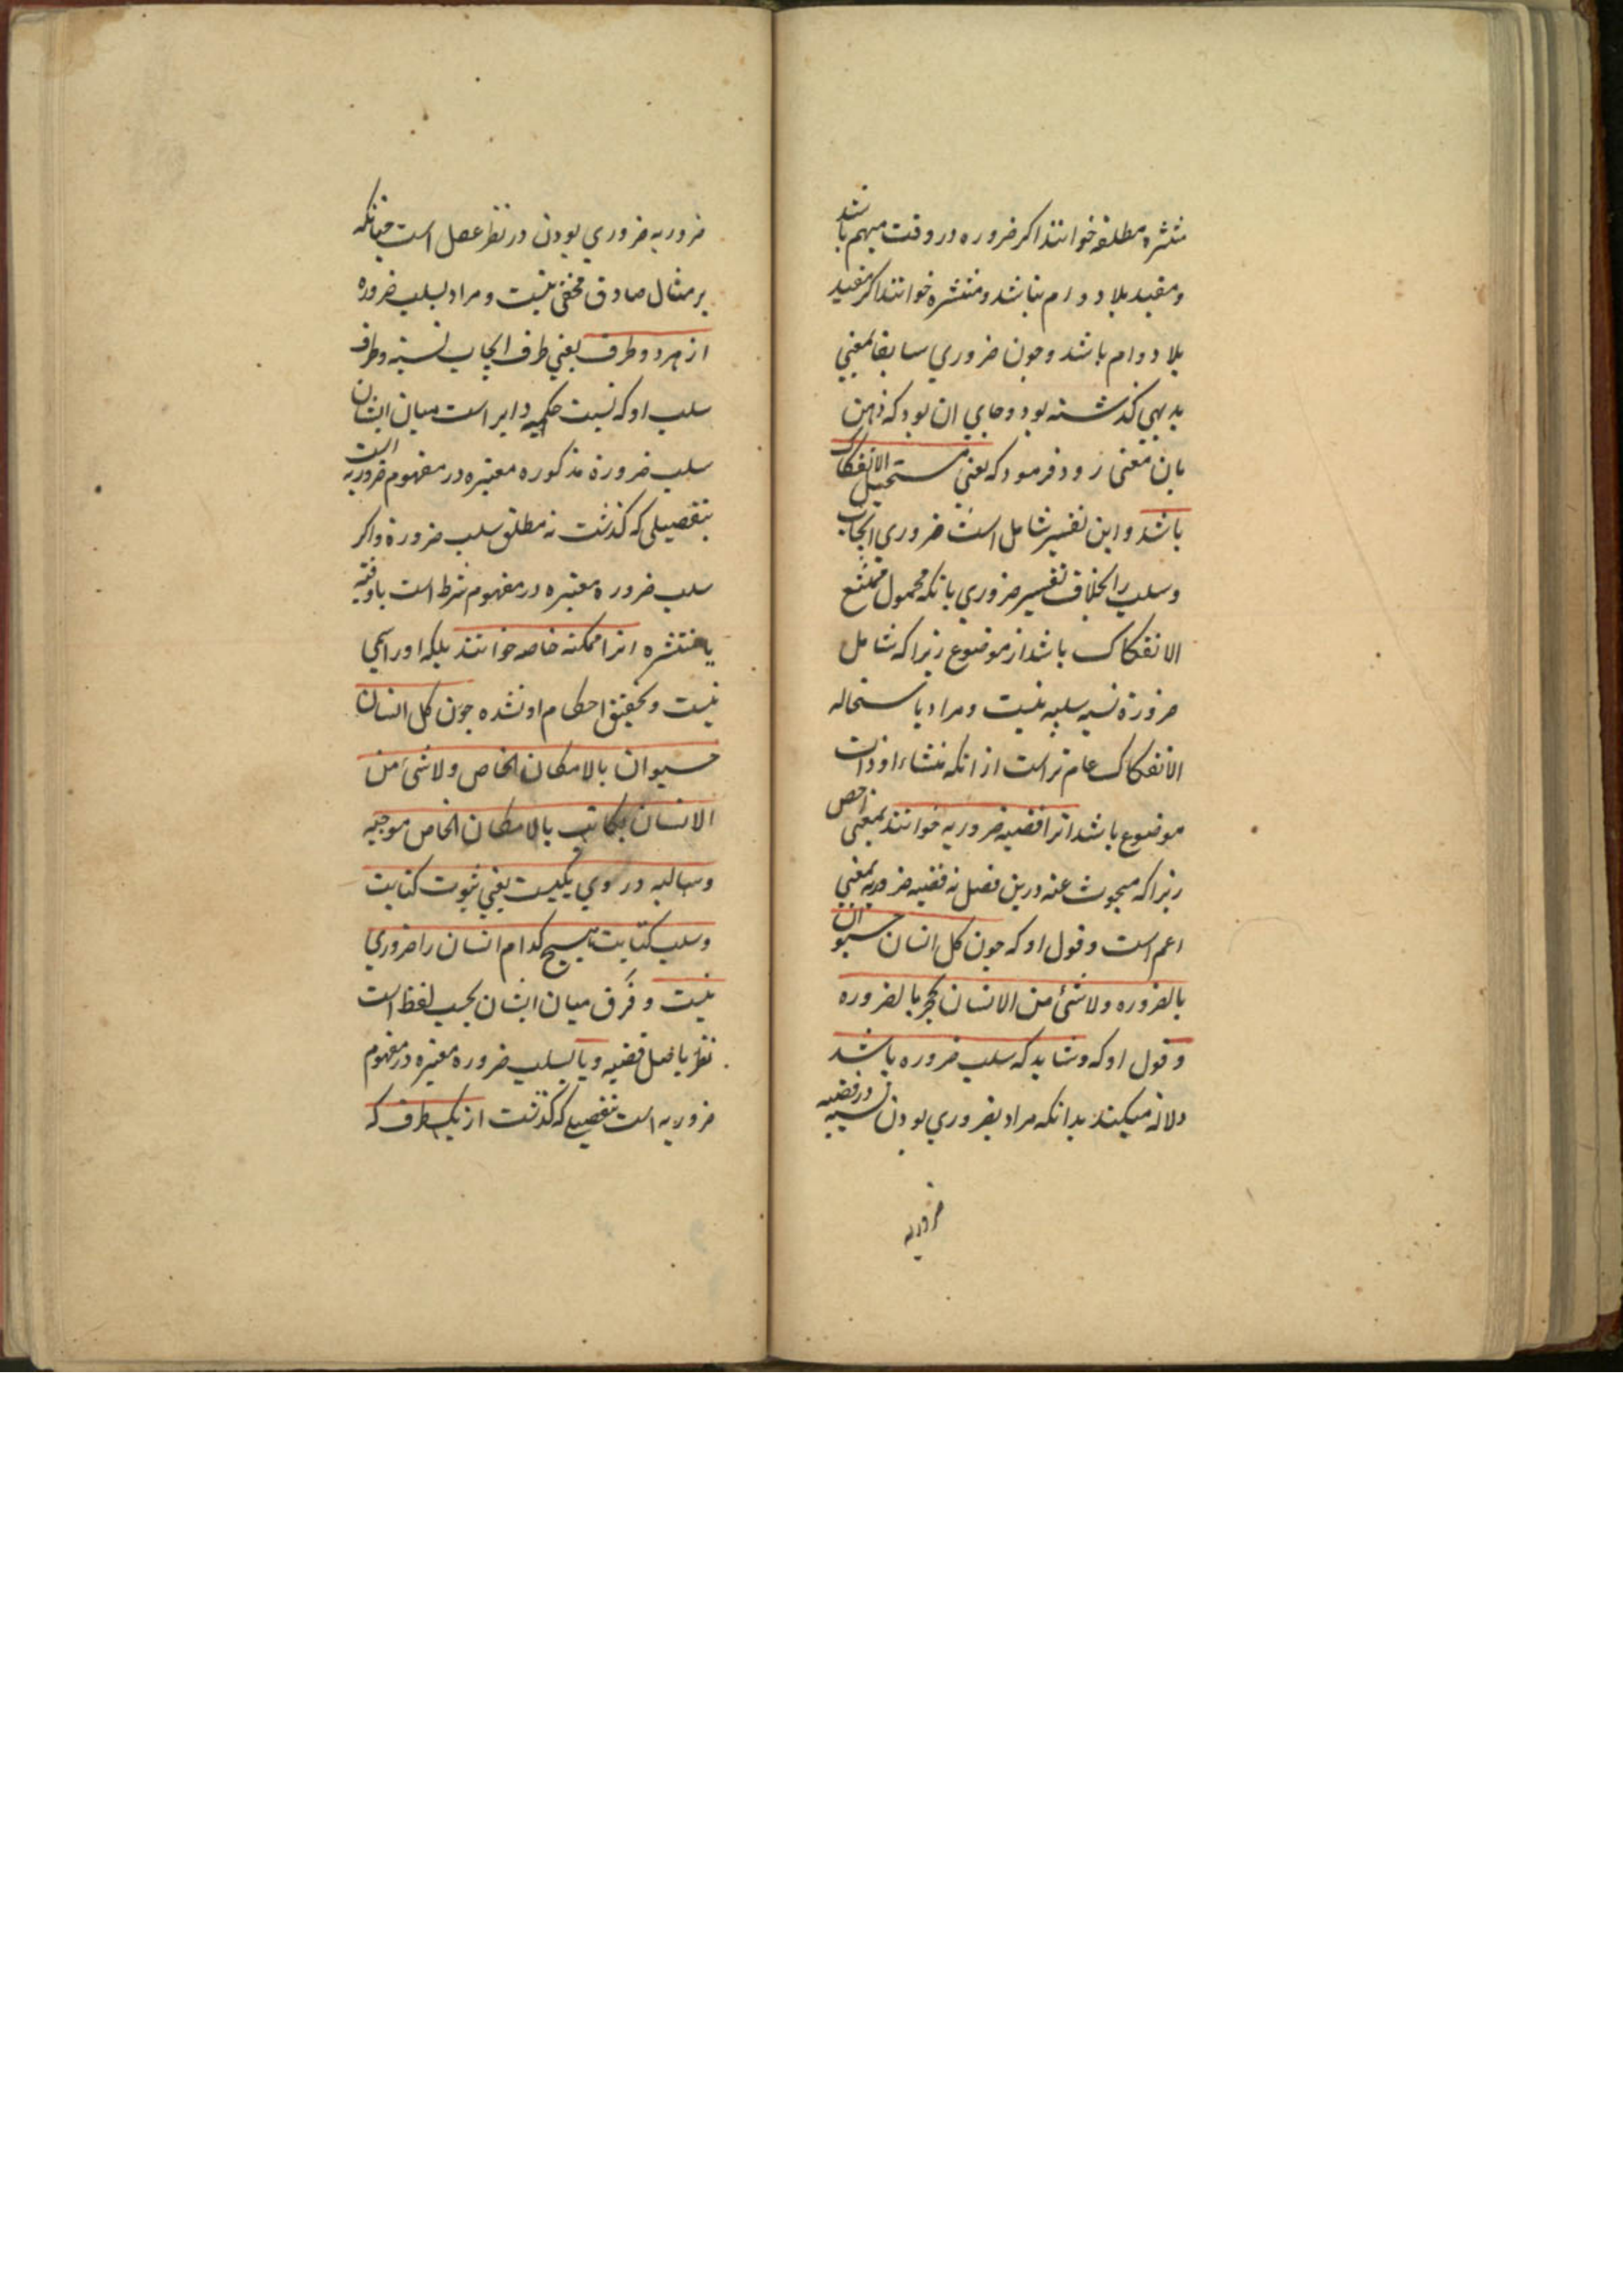 منتشره مطلقه خوانند اکر ضروره در وقت مبهم باشد
و مقید بلا دوام نباشد و منتشره خوانند اکر مقید
بلا دوام باشد و چون ضروری سابقا بمعنی
بدیهی کذشته بود و جای ان بود که ذهن
بان معنی رود فرمود که یعنی مستحیل الانفکاک
باشد و این تفسیر شامل است ضروری ایجاب
و سلب را بخلاف تفسیر ضروری بانکه محمول ممتنع
الانفکاک باشد از موضوع زیرا که شامل
ضرورة نسبه سلبیه نیست و مراد باستحاله
الانفکاک عام تر است از انکه منشاء او ذات
موضوع باشد انرا قضیه ضروریه خوانند بمعنی اخص
زیرا که مبحوث عنه درین فصل نه قضیه ضروریه بمعنی
اعم است و قول او که چون کل انسان حیوان
بالضروره و لاشئ من الانسان بحجر بالضروره
و قول او که و شاید که سلب ضروره باشد
دلالة میکند بدانکه مراد بضروری بودن نسبه در قضیه
ضروریه
ضروریه ضروری بودن در نظر عقل است چنانکه
بر مثال صادق مخفی نیست و مراد بسلب ضروره
از هر دو طرف یعنی طرف ایجاب نسبة و طرف
سلب او که نسبت حکمیه دایر است میان ایشان
سلب ضرورة مذکوره معتبره در مفهوم ضروریه است
بتفصیلی که کذشت نه مطلق سلب ضرورة و اکر
سلب ضروره معتبره در مفهوم شرط است یا وقتیه
یا منتشره انرا ممکنه خاصه خوانند بلکه او را اسمی
نیست و تحقیق احکام او نشده چون کل انسان
حیوان بالامکان الخاص و لاشئ من
الانسان بکاتب بالامکان الخاص موجبه
و سالبه در وی یکیست یعنی ثبوت کتابت
و سلب کتابت هیچ کدام انسان را ضروری
نیست و فرق میان ایشان بحسب لفظ است
نظر باصل قضیه و یا بسلب ضروره معتبره در مفهوم
ضروریه است بتفصیلی که کذشت از یک طرف که